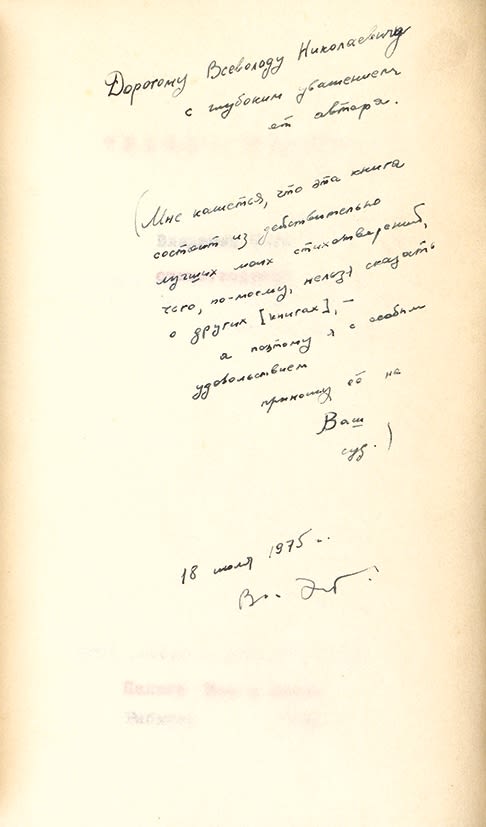 Дорогому Всеволоду Николаевичу
с глубоким уважением
от автора.
(Мне кажется, что эта книга
состоит из действительно
лучших моих стихотворений,
чего, по-моему, нельзя сказать
о других [книгах], –
а поэтому я с особым
удовольствием
приношу её на
Ваш
суд.)
18 июля 1975 г.